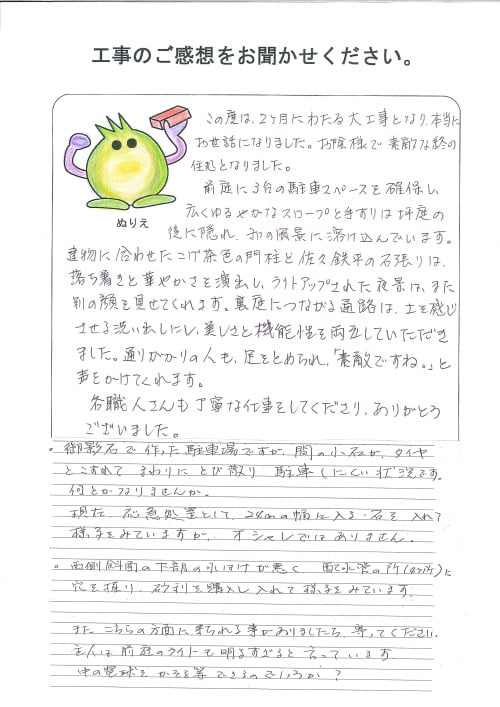 工事のご感想をお聞かせください。
この度は、2ヶ月にわたる大工事となり、本当に
お世話になりました。お陰様で素敵な終の
住処となりました。
前庭に3台の駐車スペースを確保し、
広くゆるやかなスロープと手すりは坪庭の
後に隠れ、和の風景に溶け込んでいます。
ぬりえ
建物に合わせたこげ茶色の門柱と佐久鉄平の石張りは、
落ち着きと華やかさを演出し、ライトアップされた夜景は、また
別の顔を見せてくれます。裏庭につながる通路は、土を感じ
させる洗い出しにし、美しさと機能性を両立していただき
ました。通りがかりの人も、足をとめられ、「素敵ですね。」と
声をかけてくれます。
各職人さんも丁寧な仕事をしてくださり、ありがとう
ございました。
。御影石で作った駐車場ですが、間の小石が、タイヤ
とこすれて まわりにとび散り 駐車しにくい状況です。
何とかなりませんか。
現在、応急処置として、24mmの幅に入る石を入れて
様子をみていますが、オシャレではありません。
。西側斜面の下部の水はけが悪く 配水管の所(4ヶ所)に
穴を掘り、砂利を購入し入れて様子をみています。
また こちらの方面に来られる事がありましたら 寄ってください。
主人は前庭のライトも明るすぎると言っています。
中の電球をかえる等できるのでしょうか?